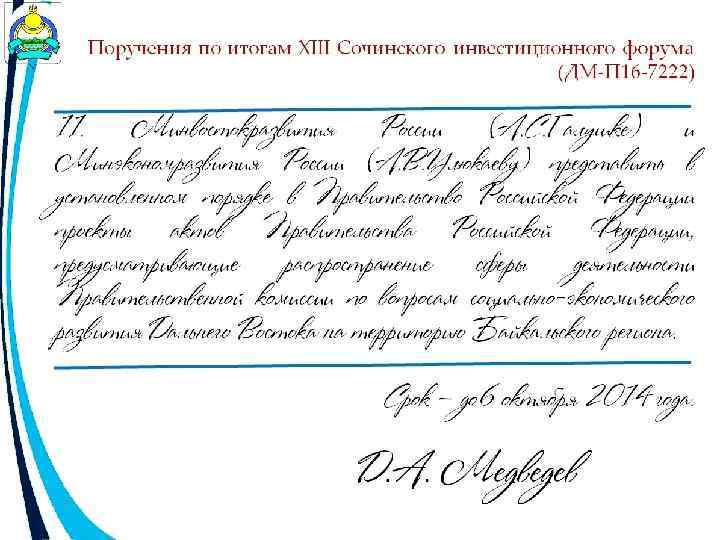 Поручения по итогам XIII Сочинского инвестиционного форума
(ДМ-П16-7222)
11. Минвостокразвития России (А.С.Галушке) и
Минэкономразвития России (А.В.Улюкаеву) представить в
установленном порядке в Правительство Российской Федерации
проекты актов Правительства Российской Федерации,
предусматривающие распространение сферы деятельности
Правительственной комиссии по вопросам социально-экономического
развития Дальнего Востока на территорию Байкальского региона.
Срок – до 6 октября 2014 года.
Д.А. Медведев